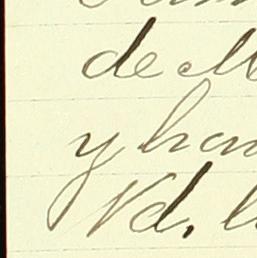 de M
y hon
Vd. l